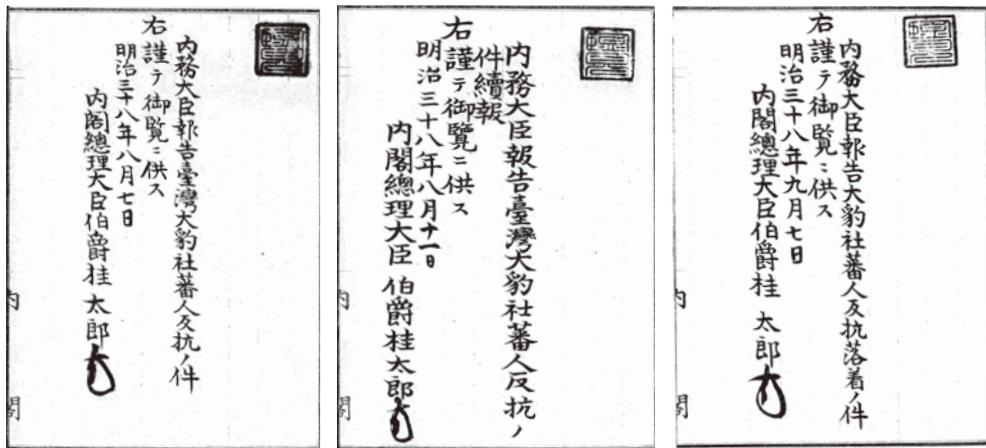 内務大臣報告臺灣大豹社蕃人反抗ノ件
右謹テ御覽ニ供ス
明治三十八年八月七日
内閣總理大臣伯爵桂太郎
内閣
内務大臣報告臺灣大豹社蕃人反抗ノ
件續報
右謹テ御覽ニ供ス
明治三十八年八月十一日
内閣總理大臣伯爵桂太郎
内閣
内務大臣報告大豹社蕃人反抗落着ノ件
右謹テ御覽ニ供ス
明治三十八年九月七日
内閣總理大臣伯爵桂太郎
内閣